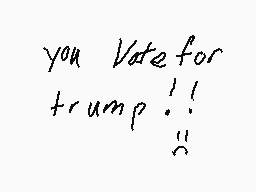 you Vote for
trump!!